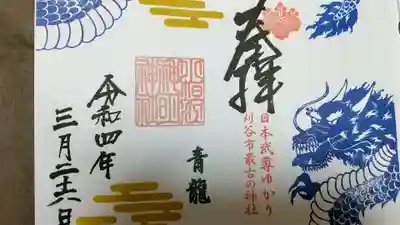 日本武尊ゆかり
刈谷市最古の神社
奉拝
青龍
小垣江
神明
神社
令和四年
三月二十六日